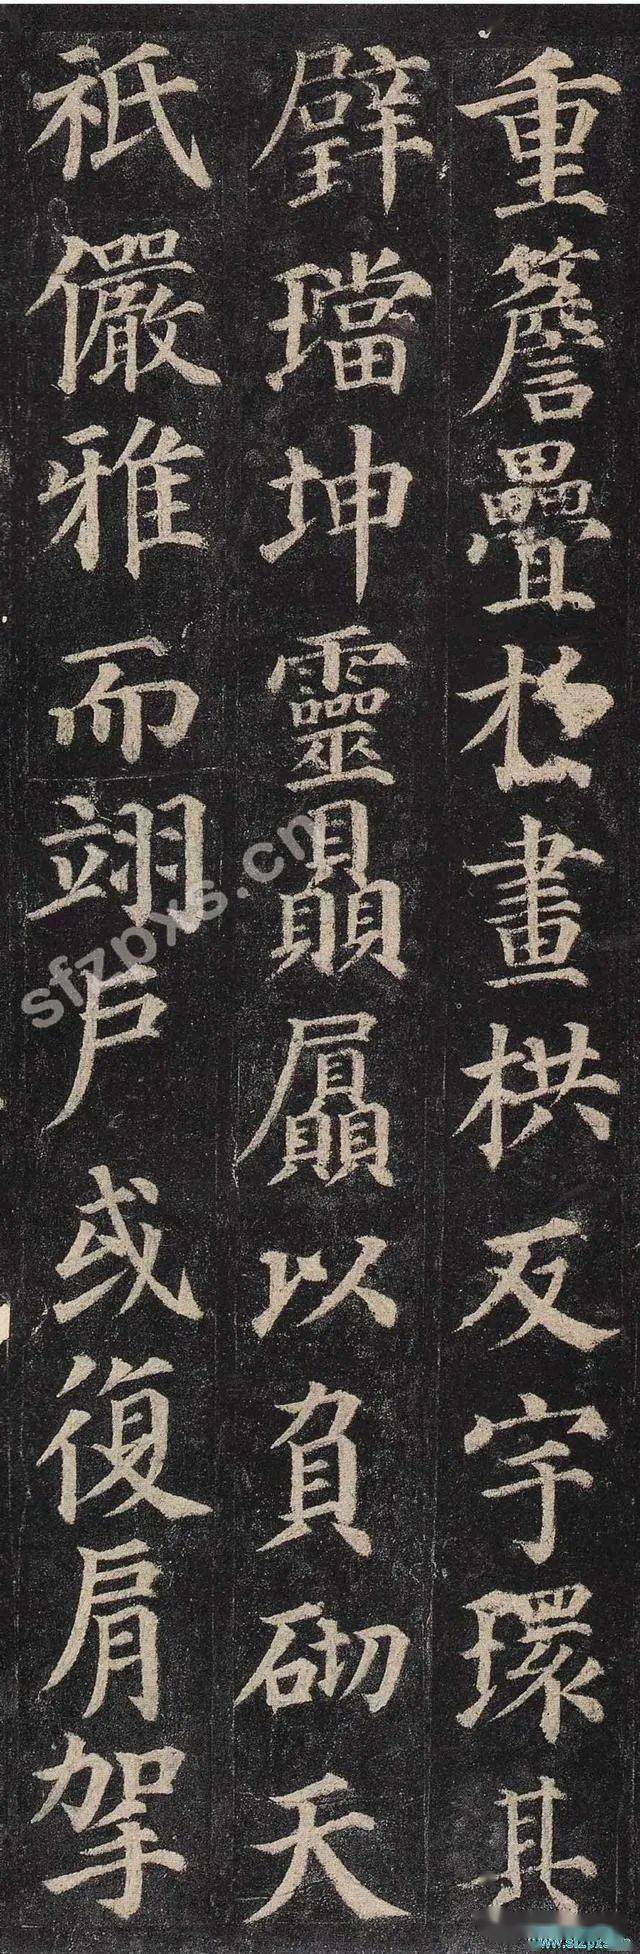 重簷疊扵畫栱反宇環其
壁璫坤靈贔屭以負砌天
祇儼雅而翊戶或復肩挐
sfzpxs.cn